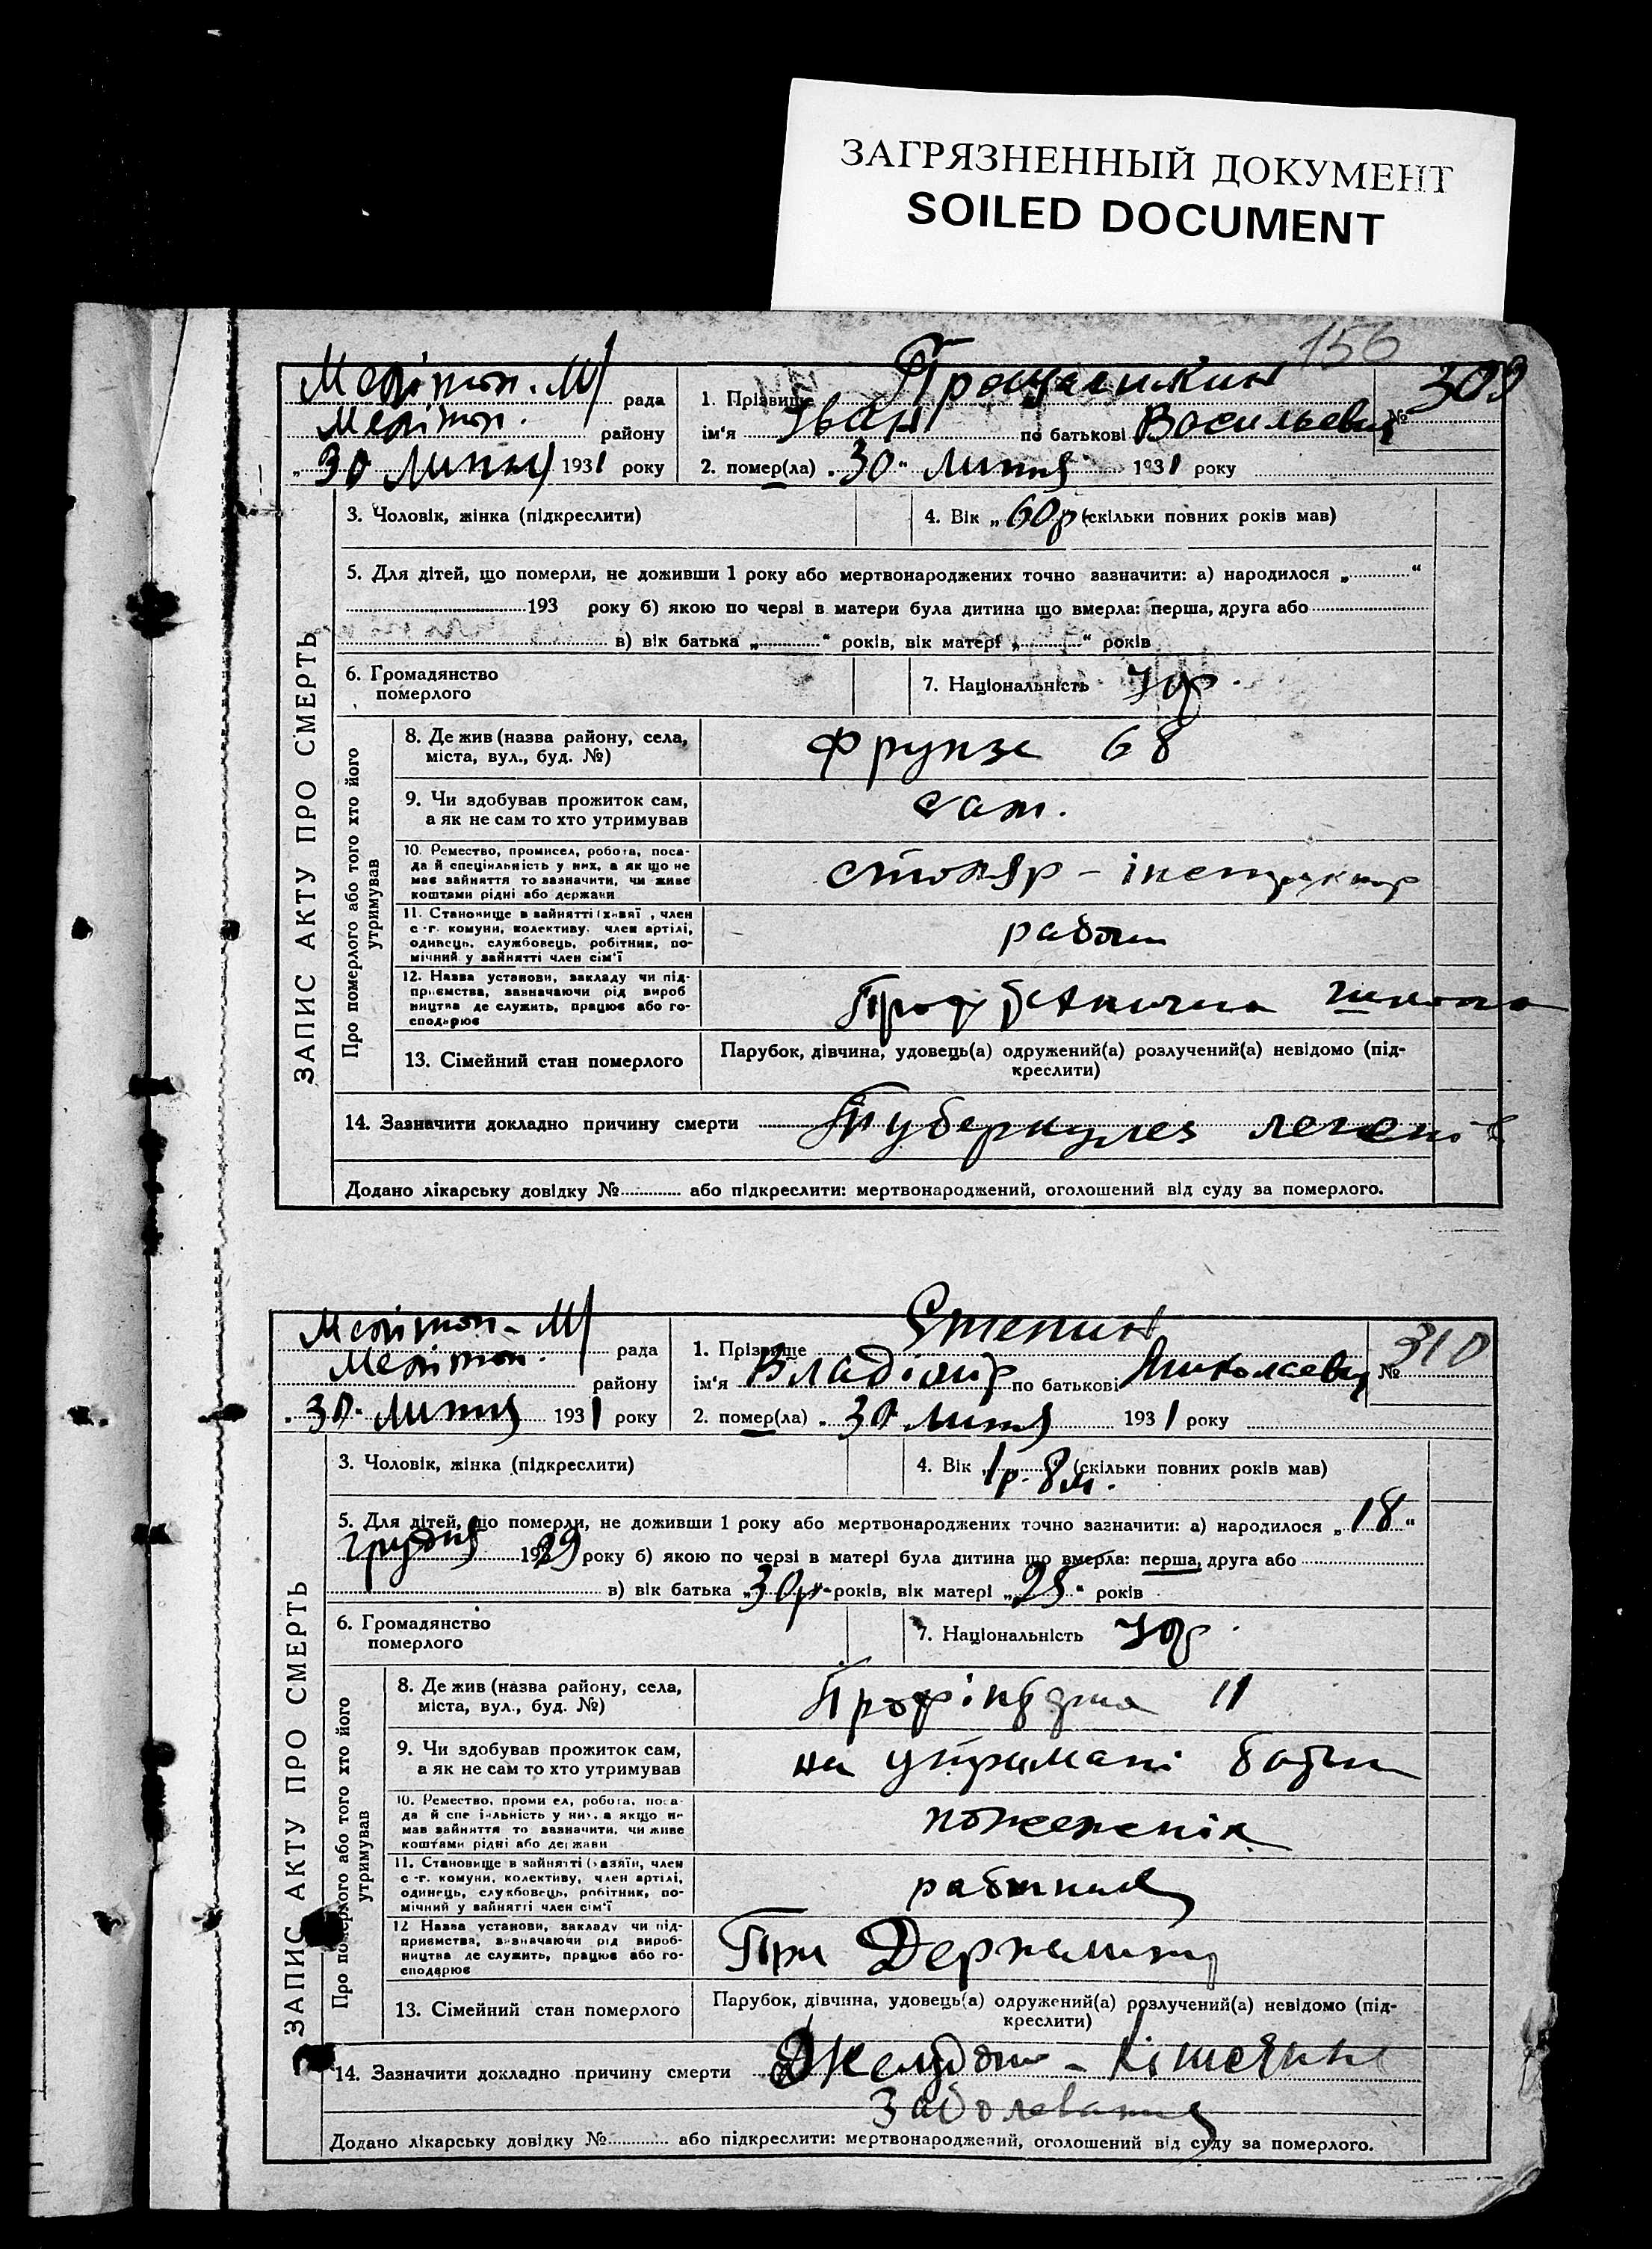 ЗАГРЯЗНЕННЫЙ ДОКУМЕНТ
SOILED DOCUMENT
156
Мелітоп. М/ рада
Мелітоп. району
„ 30 Липня 1931 року
1. Прізвище
309
ім'я Іван по батькові Васильевич №
2. помер(ла) „30" липня 1931 року
ЗАПИС АКТУ ПРО СМЕРТЬ
3. Чоловік, жінка (підкреслити)
4. Вік „ 60р (скільки повних років мав)
5. Для дітей, що померли, не доживши 1 року або мертвонароджених точно зазначити: а) народилося „ “
193 року б) якою по черзі в матери була дитина що вмерла: перша, друга або
в) вік батька „ “ років, вік матері „ “ років
6. Громадянство
померлого
7. Національність Укр.
Про померлого або того хто його
утримував
8. Де жив (назва району, села,
міста, вул., буд. №)
Фрунзе 68
9. Чи здобував прожиток сам,
а як не сам то хто утримував
сам.
10. Ремество, промисел, робота, поса-
да й спеціяльність у них, а як що не
мав зайняття то зазначити, чи живе
коштами рідні або держави
столяр - інструктор
11. Становище в зайнятті (хазяї , член
с.-г. комуни, колективу, член артілі,
одинець, службовець, робітник, по-
мічний у зайнятті член сім'ї
12. Назва установи, закладу чи під-
приємства, зазначаючи рід вироб
ництва де служить, працює або го-
сподарює
школа
13. Сімейний стан померлого
Парубок, дівчина, удовець(а) одружений(а) розлучений(а) невідомо (під-
креслити)
14. Зазначити докладно причину смерти Туберкулез легенів
Додано лікарську довідку № або підкреслити: мертвонароджений, оголошений від суду за померлого.
Мелітоп - М/ рада
Мелітоп. району
„ 30 " липня 1931 року
1. Прізвище
310
ім'я Владімір по батькові Николаевич №
2. помер(ла) „ 30 липня 1931 року
ЗАПИС АКТУ ПРО СМЕРТЬ
3. Чоловік, жінка (підкреслити)
4. Вік 1р. 8м. (скільки повних років мав)
5. Для дітей, що померли, не доживши 1 року або мертвонароджених точно зазначити: а) народилося „18“
грудня 1929 року б) якою по черзі в матері була дитина що вмерла: перша, друга або
в) вік батька „30р“ років, вік матері „25“ років
6. Громадянство
померлого
7. Національність Укр.
Про померлого або того хто його
утримував
8. Де жив (назва району, села,
міста, вул., буд. №)
11
9. Чи здобував прожиток сам,
а як не сам то хто утримував
на утримані батьк
10. Ремество, промисел, робота, поса-
да й спеціяльність у них, а якщо не
мав зайняття то зазначити, чи живе
коштами рідні або держави
пожежнік
11. Становище в зайнятті (хазяїн, член
с.-г. комуни, колективу, член артілі,
одинець, службовець, робітник, по-
мічний у зайнятті член сім'ї
12 Назва установи, закладу чи під-
приємства, зазначаючи рід вироб-
ництва де служить, працює або го-
сподарює
При
13. Сімейний стан померлого
Парубок, дівчина, удовець(а) одружений(а) розлучений(а) невідомо (під-
креслити)
14. Зазначити докладно причину смерти
Заболевания
Додано лікарську довідку № або підкреслити: мертвонароджений, оголошений від суду за померлого.